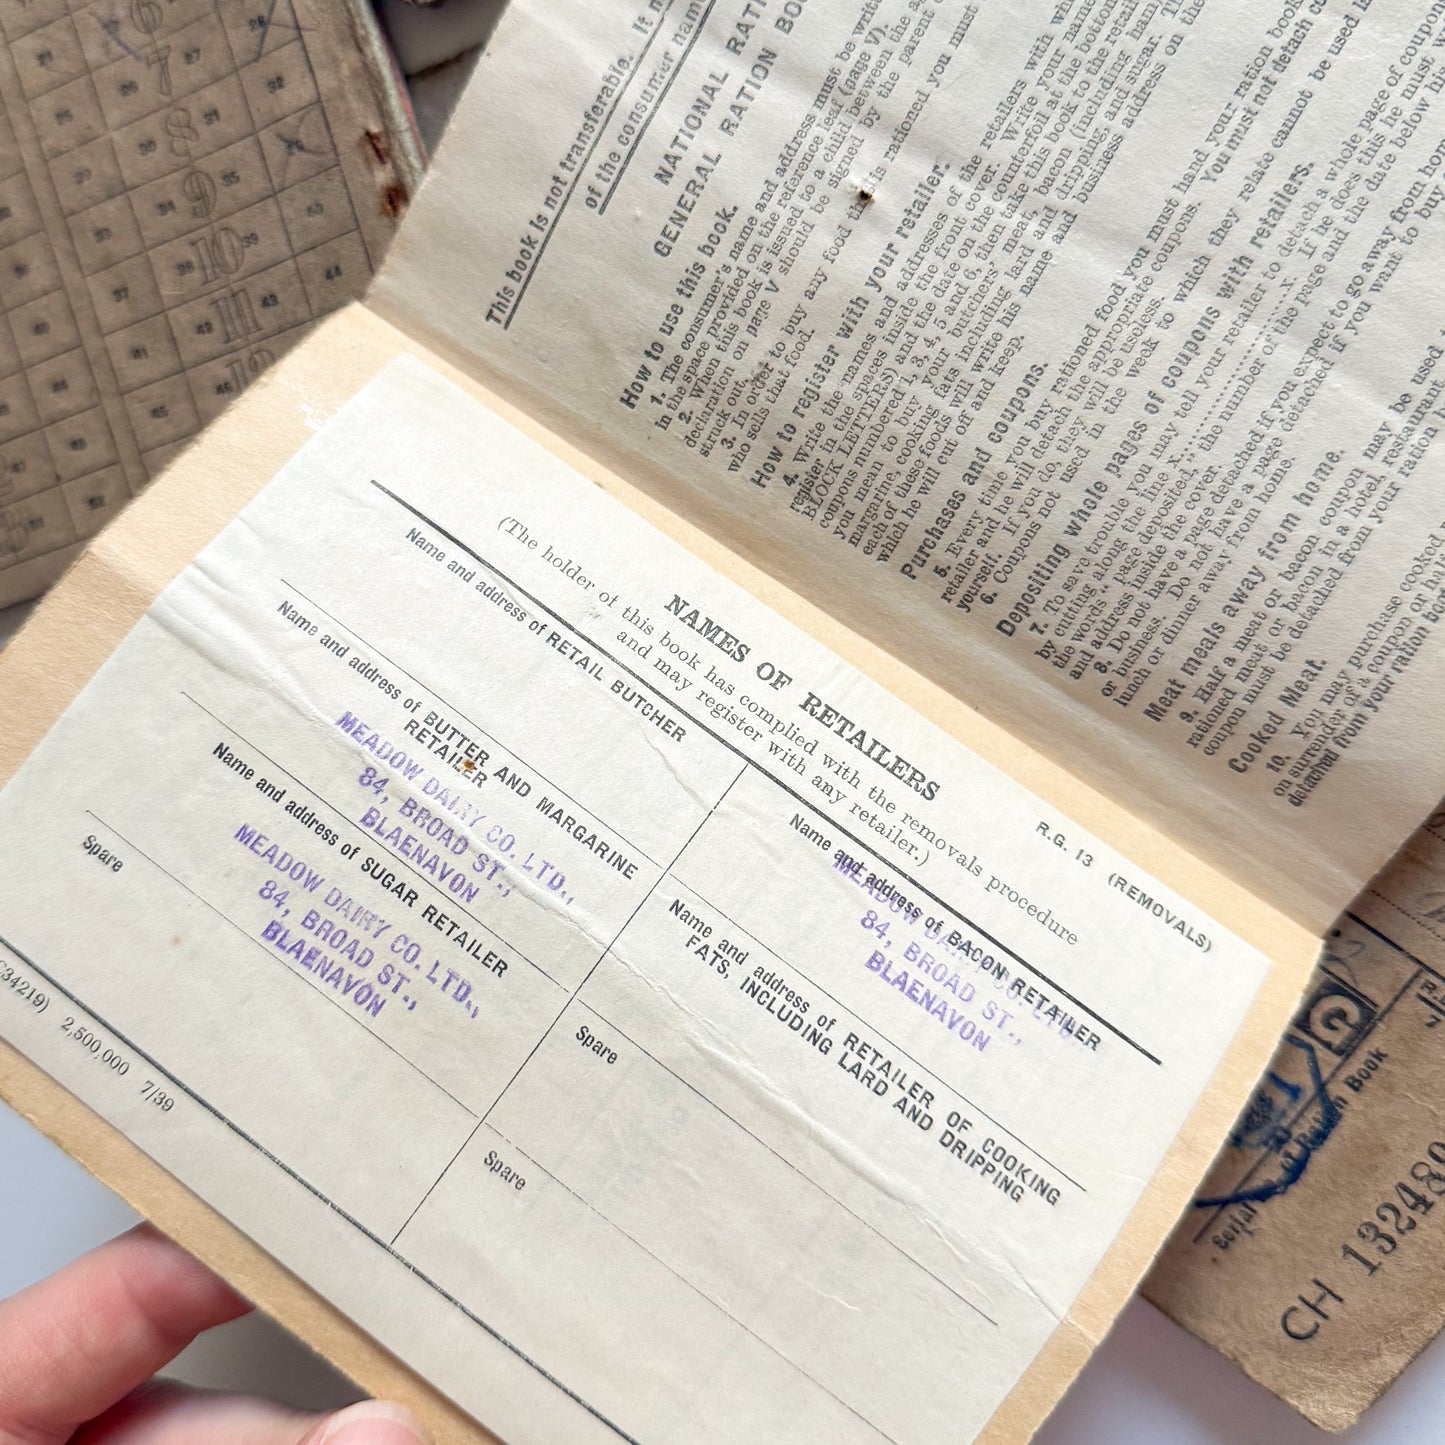 This book is not transferable. It
of the consumer
NATIONAL
GENERAL RATION
How to use this book.
1. The consumer's name and address must be
in the space provided on the reference leaf (page V).
2. When this book is issued to a child between the
declaration on page V should be signed by the parent
struck out.
3. In order to buy any food that is rationed you must
who sells that food.
How to register with your retailer.
4. Write the names and addresses of the retailers with
register in the spaces inside the front cover. Write your name
BLOCK LETTERS) and the date on the counterfoil at the bottom
coupons numbered 1, 3, 4, 5 and 6, then take this book to the
you mean to buy your butchers' meat, bacon (including ham),
margarine, cooking fats including lard and dripping, and sugar.
each of these foods will write his name and business address on the
which he will cut off and keep.
Purchases and coupons.
5. Every time you buy rationed food you must hand your ration book
retailer and he will detach the appropriate coupons. You must not detach
yourself. If you do, they will be useless.
6. Coupons not used in the week to which they relate cannot be used
Depositing whole pages of coupons with retailers.
7. To save trouble you may tell your retailer to detach a whole page of
by cutting along the line x..........x. If he does this he must
the words "page deposited," the number of the page and the date below his
and address inside the cover.
8. Do not have a page detached if you expect to go away from
or business. Do not have a page detached if you want to buy
lunch or dinner away from home.
Meat meals away from home.
9. Half a meat or bacon coupon may be used
rationed meat or bacon in a hotel, restaurant
coupon must be detached from your ration
Cooked Meat.
10. You may purchase cooked
on surrender of a coupon or
detached from your ration
R.G. 13 (REMOVALS)
NAMES OF RETAILERS
(The holder of this book has complied with the removals procedure
and may register with any retailer.)
Name and address of RETAIL BUTCHER
Name and address of BACON RETAILER
MEADOW DAIRY CO. LTD.,
84, BROAD ST.,
BLAENAVON
Name and address of BUTTER AND MARGARINE
RETAILER
MEADOW DAIRY CO. LTD.,
84, BROAD ST.,
BLAENAVON
Name and address of RETAILER OF COOKING
FATS, INCLUDING LARD AND DRIPPING
Name and address of SUGAR RETAILER
MEADOW DAIRY CO. LTD.,
84, BROAD ST.,
BLAENAVON
Spare
Spare
Spare
34219) 2,500,000 7/39
7
8
9
10
11
Serial of Ration Book
CH 132489